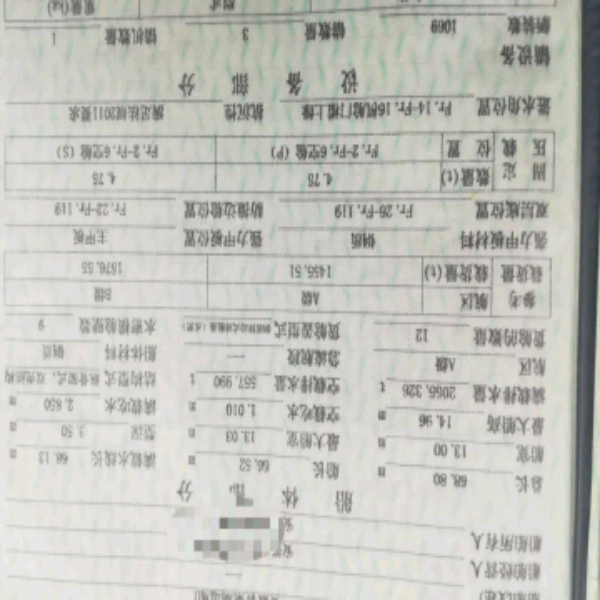 船舶经营人 —
船舶所有人
船 体 部 分
总长 68.80 m 船长 66.52 m 满载水线长 68.13 m
船宽 13.00 m 最大船宽 13.03 m 型深 3.50 m
最大船高 14.96 m 空载吃水 1.010 m 满载吃水 2.850 m
满载排水量 2065.326 t 空载排水量 557.990 t 结构型式
航区 A级 急流航段 — 船体材料 钢质
货舱的数量 12 货舱盖型式 水密横舱壁数 9
参考载货量 航区 A级 B级
载货量(t) 1455.51 1576.55
强力甲板材料 钢质 强力甲板位置 主甲板
双层底位置 Fr.25-Fr.119 防撞边舱位置 Fr.22-Fr.119
固定压载 数量(t) 4.75 4.75
位置 Fr.2-Fr.6空舱 (P) Fr.2-Fr.6空舱 (S)
进水角位置 Fr.14-Fr.16机舱门槛上缘 抗沉性 满足法规2011要求
设 备 部 分
锚设备
舾装数 1069 锚数量 3 锚机数量 1
型式 重量(kg)